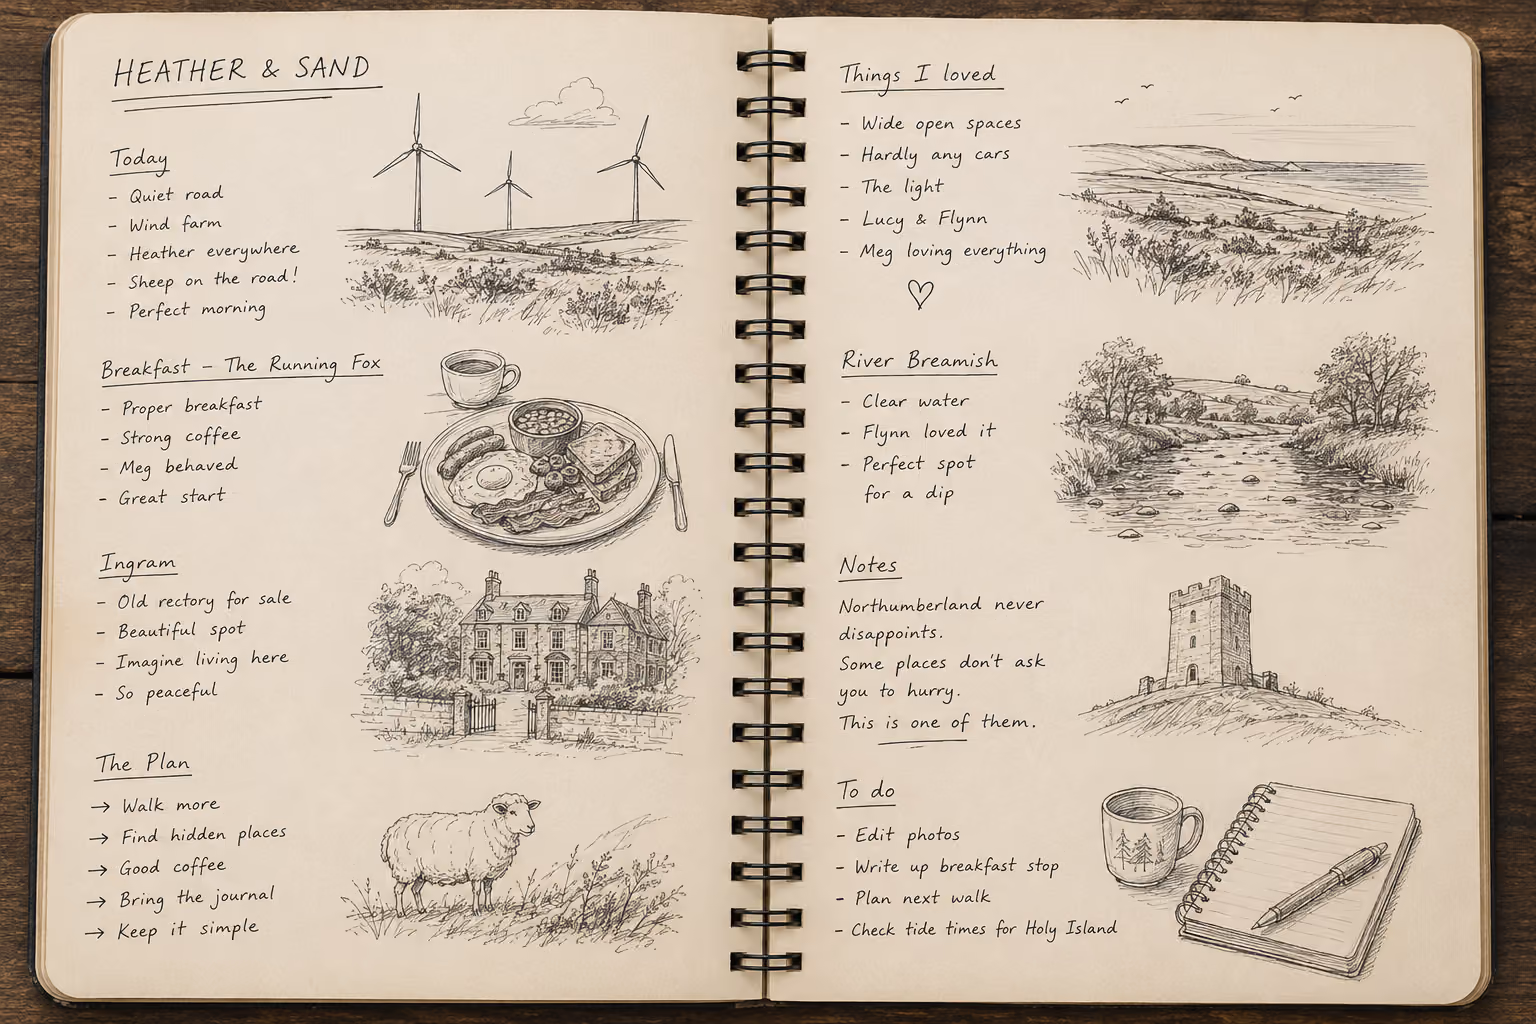 HEATHER & SAND
Today
- Quiet road
- Wind farm
- Heather everywhere
- Sheep on the road!
- Perfect morning
Breakfast – The Running Fox
- Proper breakfast
- Strong coffee
- Meg behaved
- Great start
Ingram
- Old rectory for sale
- Beautiful spot
- Imagine living here
- So peaceful
The Plan
→ Walk more
→ Find hidden places
→ Good coffee
→ Bring the journal
→ Keep it simple
Things I loved
- Wide open spaces
- Hardly any cars
- The light
- Lucy & Flynn
- Meg loving everything
♡
River Breamish
- Clear water
- Flynn loved it
- Perfect spot
for a dip
Notes
Northumberland never
disappoints.
Some places don't ask
you to hurry.
This is one of them.
To do
- Edit photos
- Write up breakfast stop
- Plan next walk
- Check tide times for Holy Island